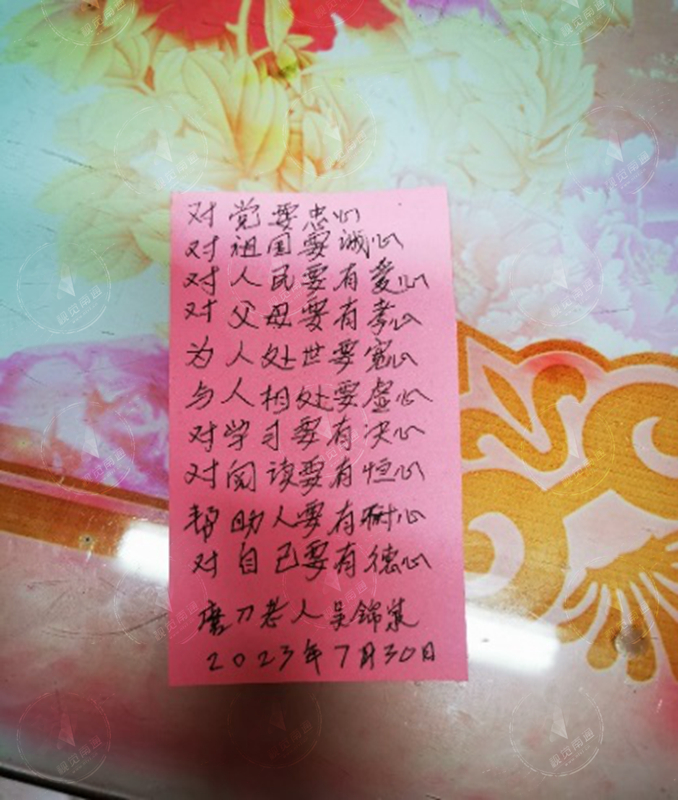 对党要忠心
对祖国要诚心
对人民要有爱心
对父母要有孝心
为人处世要宽心
与人相处要虚心
对学习要有决心
对阅读要有恒心
帮助人要有耐心
对自己要有德心
磨刀老人吴锦泉
2023年7月30日